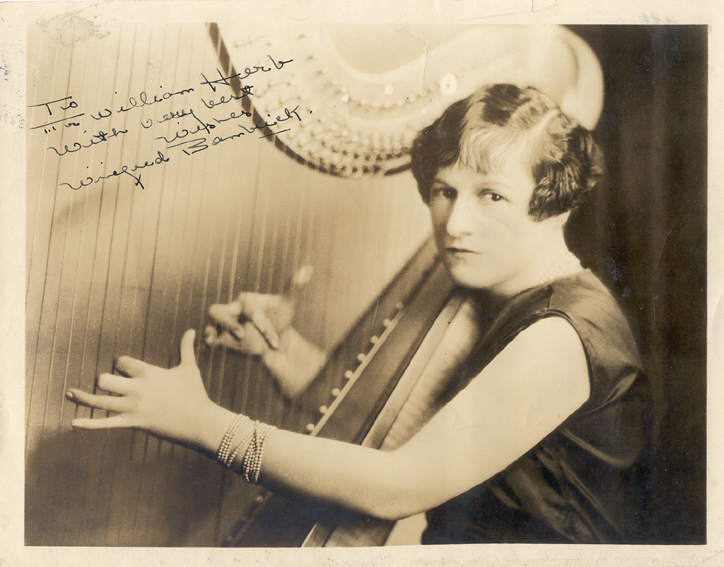 To
"Mr William Herb
With very best
Wishes
Winifred Bambrick.